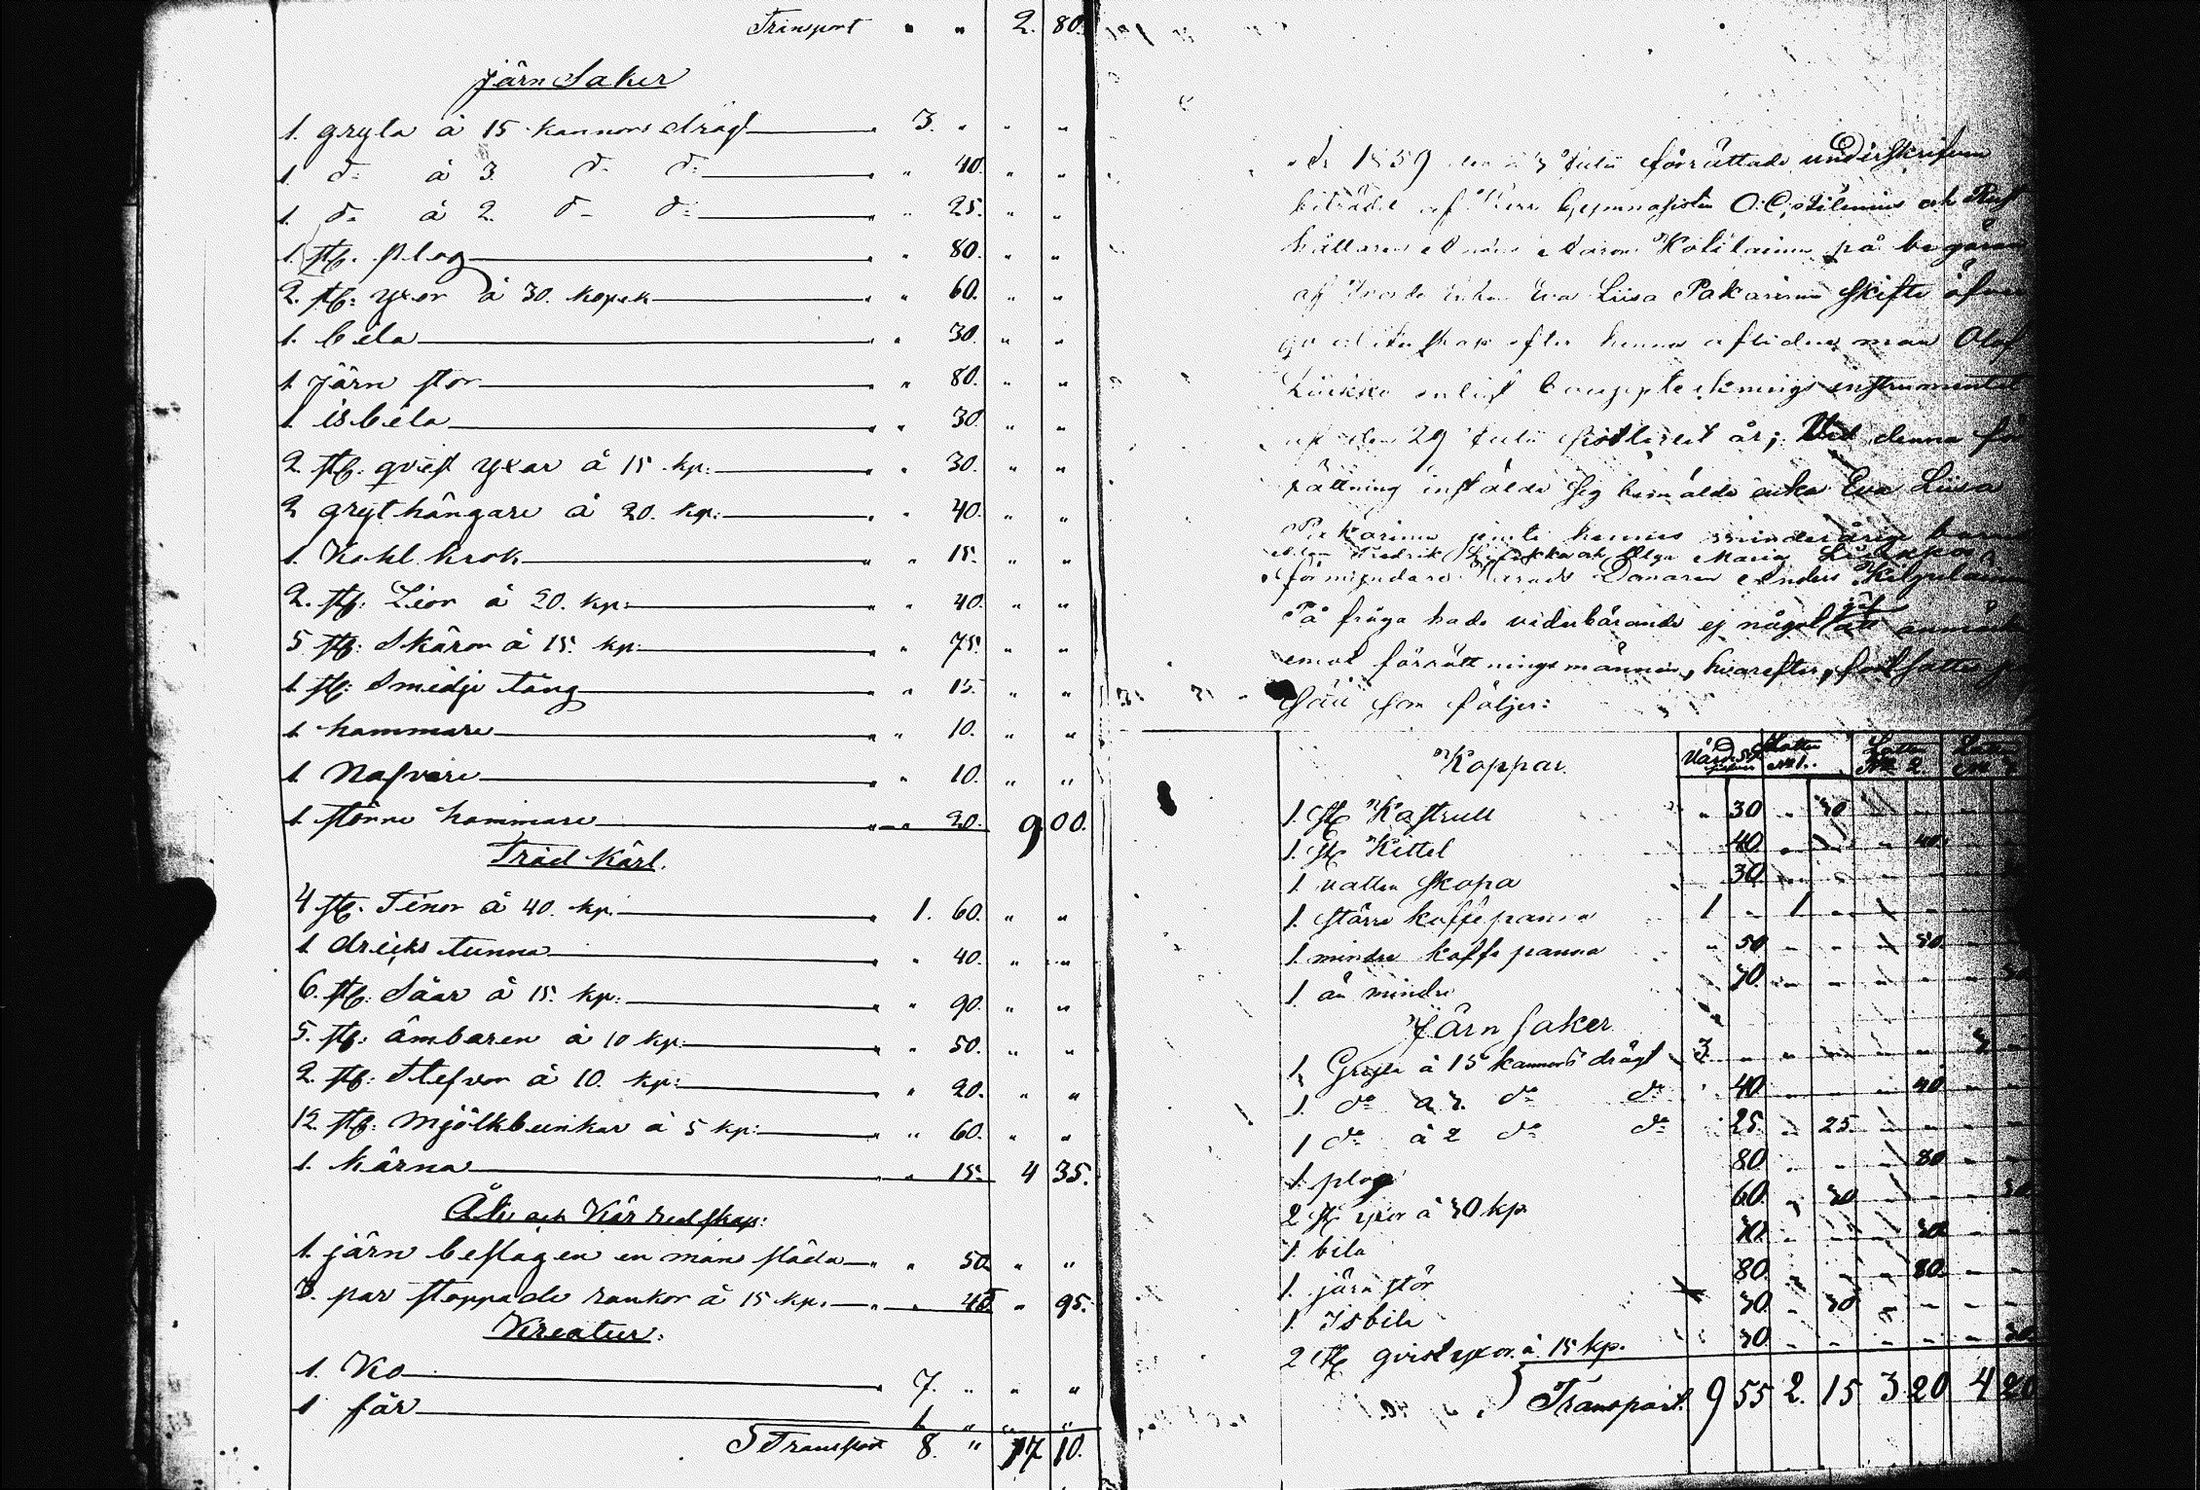 Transport " " 2. 80.
Järn Saker
1. gryta à 15 kannors drägt 3. " " "
1. do à 3. do do " 40. " "
1. do à 2. do do " 25. " "
1. st. plog " 80. " "
2. st: yxor à 30. kopek " 60. " "
1. bila " 30. " "
1 järn stör " 80. " "
1. isbila " 30. " "
2 st: qvist yxor à 15 kp: " 30. " "
2 gryt hängare à 20. kp: " 40. " "
1. Kohl krok " 15. " "
2. st: Lior à 20. kp: " 40. " "
5 st: Skäror à 15. kp: " 75. " "
1 st: Smidje tång " 15. " "
1 hammare " 10. " "
1 Nafvare " 10. " "
1 större hammare " 20. 9 00.
Träd Kärl.
4 st. Tinor à 40. kp. 1. 60. " "
1 dricks tunna " 40. " "
6. st: Såar à 15. kp: " 90. " "
5. st: ämbaren à 10 kp: " 50. " "
2. st: Stefvor à 10. kp: " 20. " "
12 st: mjölkbunkar à 5 kp: " 60. " "
1. kärna " 15. 4 35.
Åk och Kör redskap:
1. järn beslagen en mans släda " 50. " "
3. par stoppade rankor à 15 kp. " 45 " 95.
Kreatur:
1. Ko 7. " " "
1 får 1. " " "
Transport 8. " 17 10.
1859 den Julii förrättade undertecknad
biträdd af Herr Gymnasisten O. C. och Rust
hållaren på begäran
af Enka Eva Liisa Pakarinen skifte öfver
qvarlåtenskap efter hennes aflidne man Olof
Liikka enligt bouppteknings instrumentet
af den 29 Julii sistledit år; Vid denna för
rättning instälde sig bemälde enka Eva Liisa
Pakarinen jemte hennes minderåriga barns
Fredrik Liikka och Maria Liikkas
förmyndare Härads Domaren Anders
På fråga hade vederbörande ej något att anmärka
emot förrättningsmännen, hvarefter, fortsattes
såsom följer:
Koppar. Värde Lotten No 1. Lotten No 2. Lotten No 3
1. st Kastrull " 30 " 30 " " " "
1. st Kittel 40 " " " 40 " "
1. vatten skopa 30 " " " " "
1. större kaffepanna 1 " 1 " " " "
1. mindre kaffe panna " 50 " " " 50. " "
1 än mindre 70. " " " " "
Järn saker
1. Gryta à 15 kannors drägt 3. " " " " " 3 "
1. do à 3. do do 40 " " " 40 " "
1 do à 2 do do 25. " 25. " " " "
1. plog 80. " " " 80 " "
2 st yxor à 30 kp 60. " 30 " " " 30
1. bila 30. " " " 30 " "
1. järn stör 80. " " " 80. " "
1. Isbila 30 " 30 " " " "
2 st qvistyxor à 15 kp. 30. " " " " " 30
Transport. 9 55 2. 15 3 20 4 20